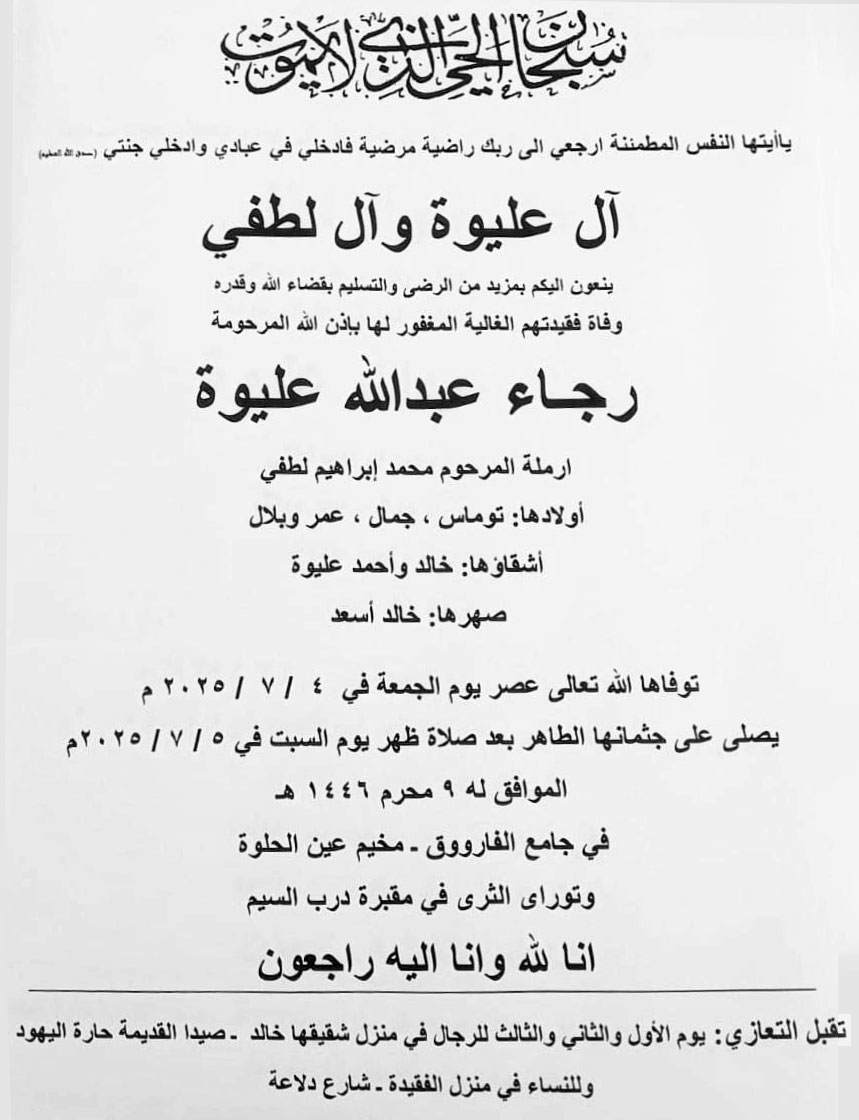 سبحان الحي الذي لا يموت
ياأيتها النفس المطمئنة ارجعي الى ربك راضية مرضية فادخلي في عبادي وادخلي جنتي (صدق الله العظيم)
آل عليوة وآل لطفي
ينعون اليكم بمزيد من الرضى والتسليم بقضاء الله وقدره
وفاة فقيدتهم الغالية المغفور لها بإذن الله المرحومة
رجاء عبدالله عليوة
ارملة المرحوم محمد إبراهيم لطفي
أولادها: توماس ، جمال ، عمر وبلال
أشقاؤها: خالد وأحمد عليوة
صهرها: خالد أسعد
توفاها الله تعالى عصر يوم الجمعة في ٤ / ٧ / ٢٠٢٥ م
يصلى على جثمانها الطاهر بعد صلاة ظهر يوم السبت في ٥ / ٧ / ٢٠٢٥م
الموافق له ٩ محرم ١٤٤٦ هـ
في جامع الفارووق - مخيم عين الحلوة
وتوراى الثرى في مقبرة درب السيم
انا لله وانا اليه راجعون
تقبل التعازي: يوم الأول والثاني والثالث للرجال في منزل شقيقها خالد - صيدا القديمة حارة اليهود
وللنساء في منزل الفقيدة - شارع دلاعة